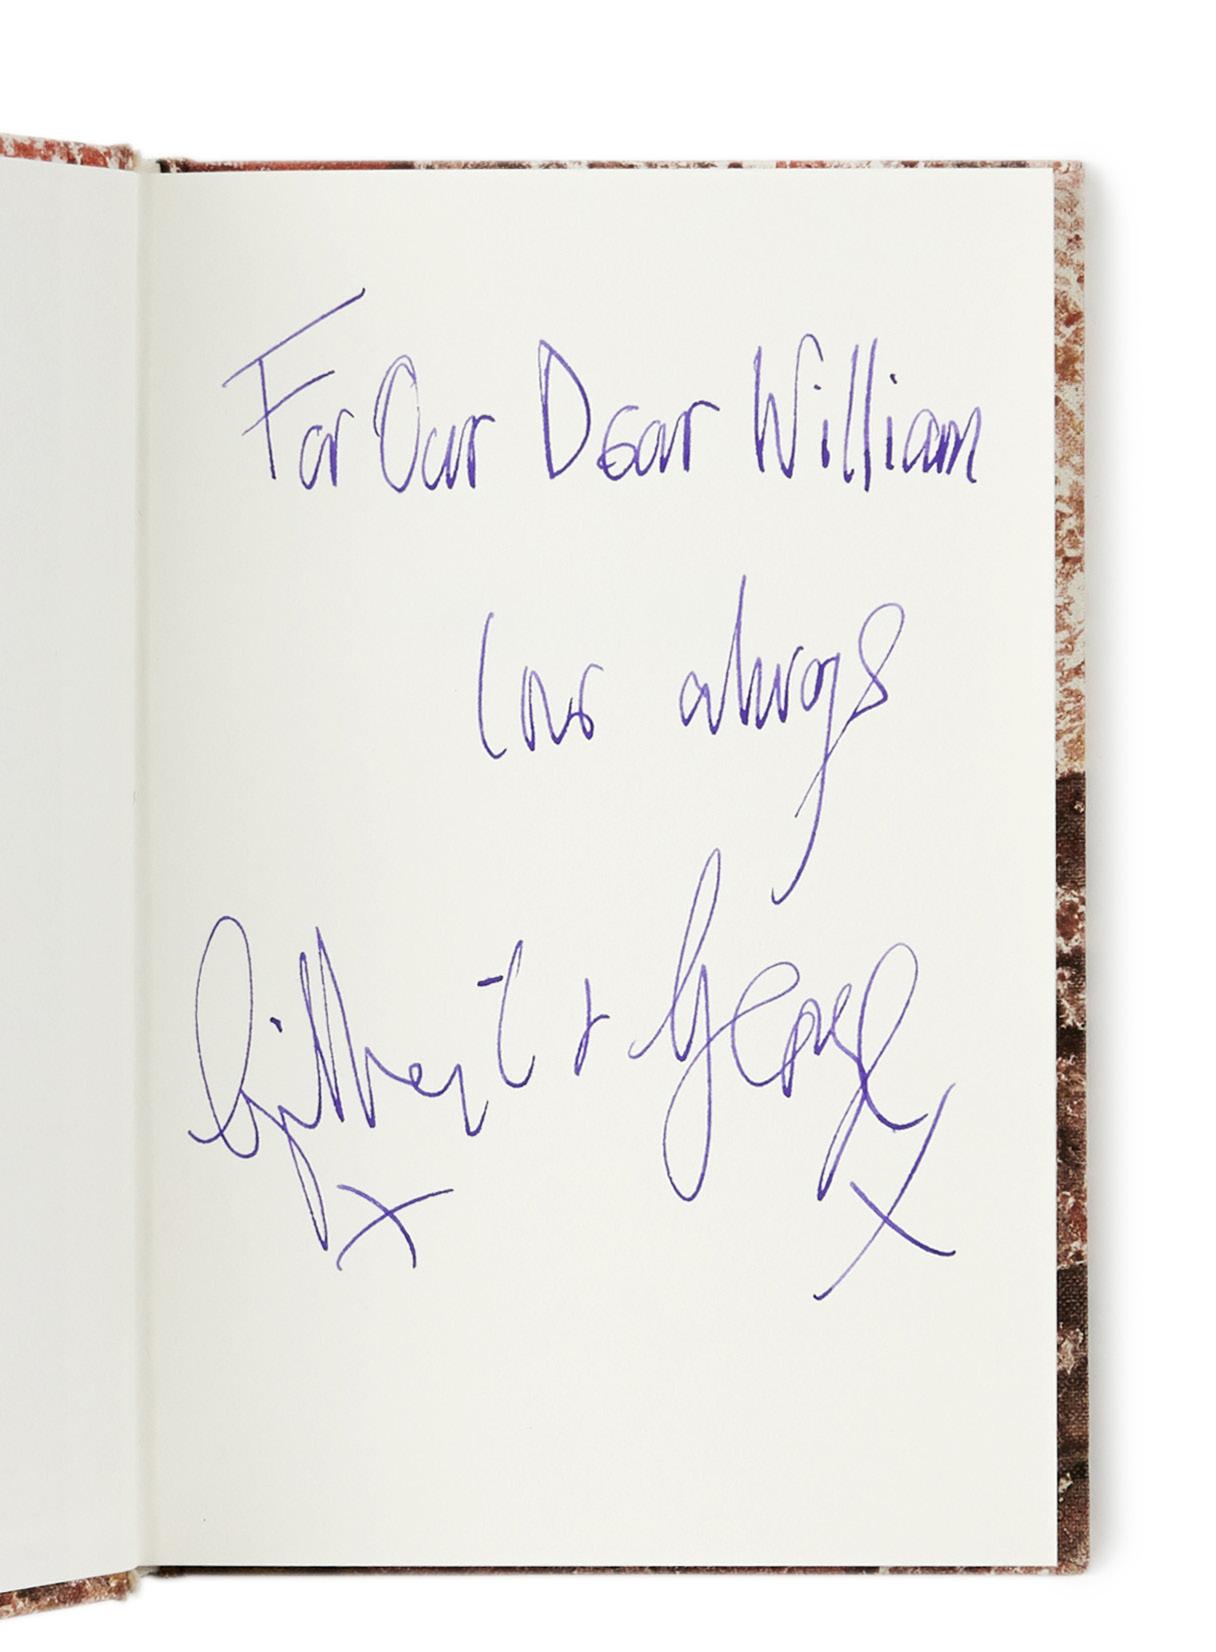 For Our Dear William
love always
Gilbert & George
x x